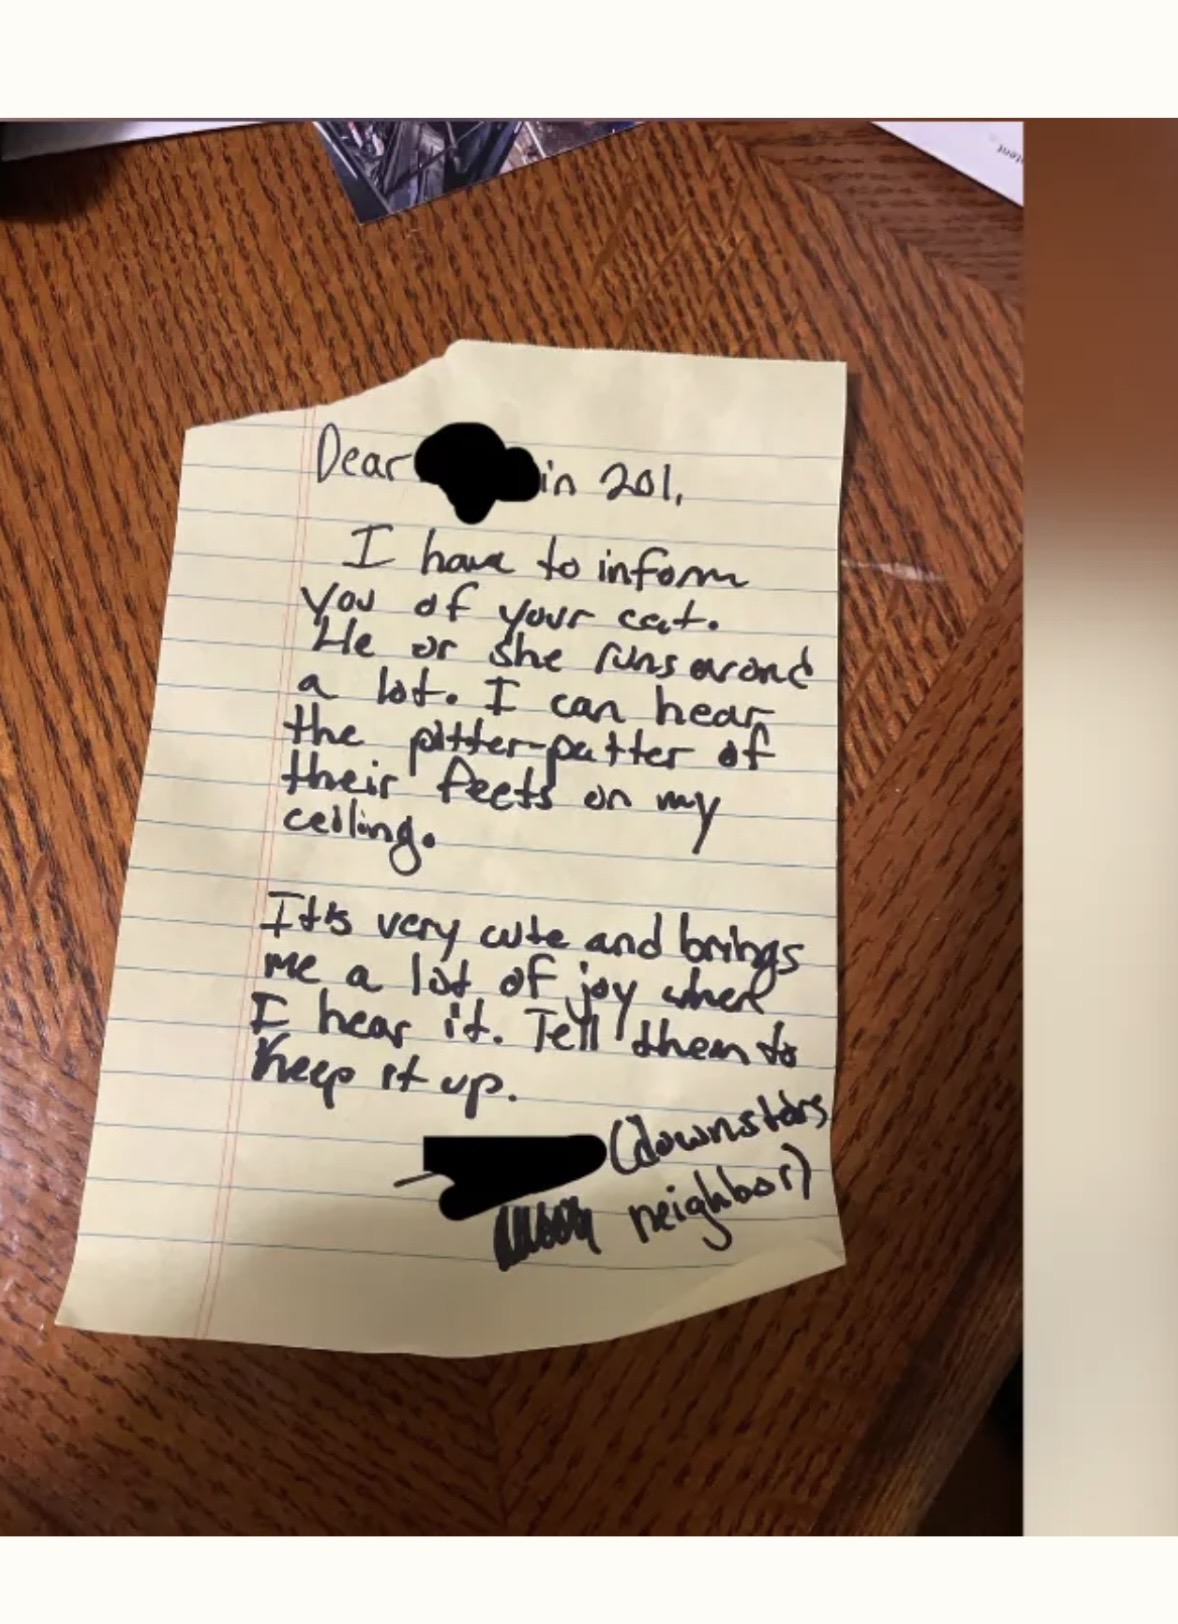 Dear in 201,
I have to inform
you of your cat.
He or she runs arond
a lot. I can hear
the pitter-patter of
their feets on my
ceiling.
It's very cute and brings
me a lot of joy when
I hear it. Tell them to
keep it up.
(downstairs
neighbor)